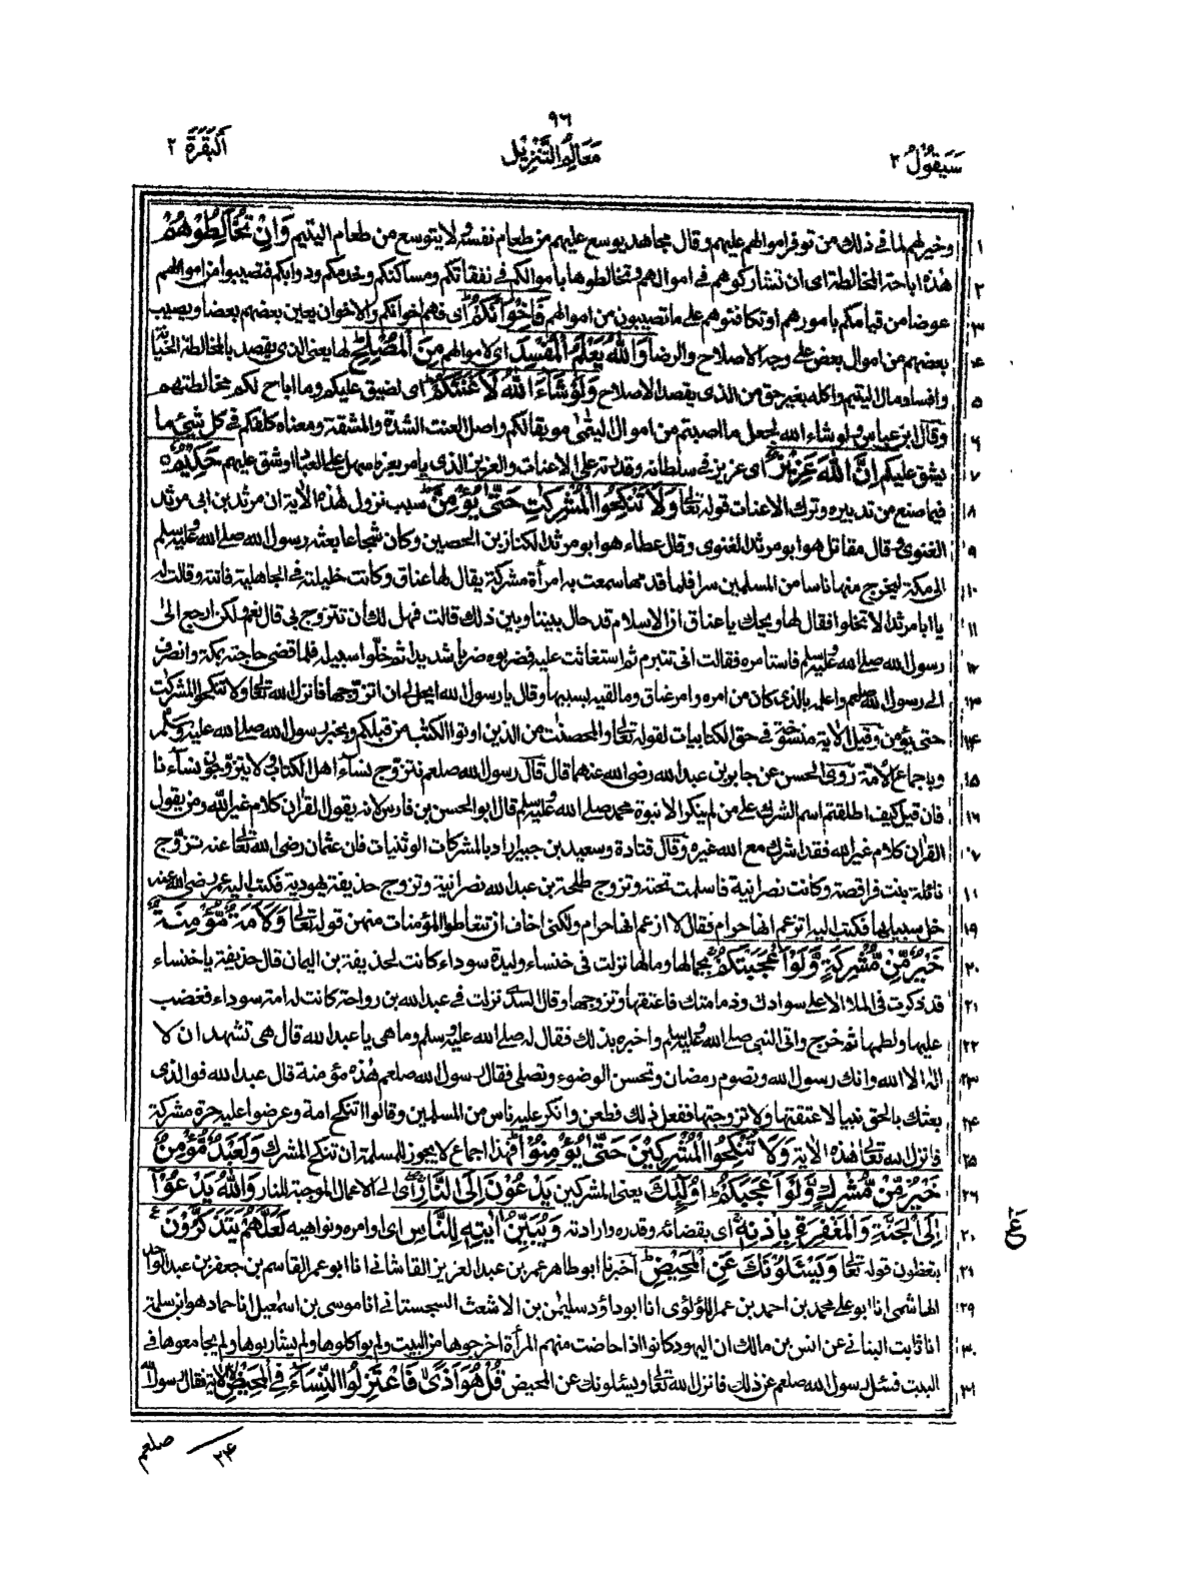 ٩٦
سَيَقُوْلُ ٢
مَعَالِمُ التَّنْزِيْل
اَلْبَقَرَة ٢
١ وخير لهم لما فى ذلك من توفر اموالهم عليهم وقال مجاهد يوسع عليهم من طعام نفسه ولا يتوسع من طعام اليتيم وَاِنْ تُخَالِطُوْهُمْ
٢ هٰذه اباحة المخالطة اى ان تشاركوهم فى اموالهم وتخالطوها باموالكم فى نفقاتكم ومساكنكم وخدمكم ودوابكم فتصيبوا من اموالهم
٣ عوضا من قيامكم بامورهم او تكافئوهم على ما تصيبون من اموالهم فَاِخْوَانُكُمْ اى فهم اخوانكم والاخوان يعين بعضهم بعضا ويصيب
٤ بعضهم من اموال بعض على وجه الاصلاح والرضا وَاللّٰهُ يَعْلَمُ الْمُفْسِدَ اى لاموالهم مِنَ الْمُصْلِحِ لها يعنى الذى يقصد بالمخالطة الخيانة
٥ وافساد مال اليتيم واكله بغير حق من الذى يقصد الاصلاح وَلَوْ شَاءَ اللّٰهُ لَاَعْنَتَكُمْ اى لضيق عليكم وما اباح لكم مخالطتهم
٦ وقال ابن عباس ولو شاء الله لجعل ما اصبتم من اموال اليتٰمى موبقا لكم واصل العنت الشدة والمشقة ومعناه كلفكم فى كل شيئ ما
٧ يشق عليكم اِنَّ اللّٰهَ عَزِيْزٌ اى عزيز فى سلطانه وقدرته على الاعنات والعزيز الذى يامر بعزة سهل على العباد او شق عليهم حَكِيْمٌ
٨ فيما صنع من تدبيره وترك الاعنات قوله تعالى وَلَا تَنْكِحُوا الْمُشْرِكٰتِ حَتّٰى يُؤْمِنَّ سبب نزول هٰذه الاية ان مرثد بن ابى مرثد
٩ الغنوى وقال مقاتل هو ابو مرثد الغنوى وقال عطاء هو ابو مرثد كناز بن الحصين وكان شجاعا بعثه رسول الله صلى الله عليه وسلم
١٠ الى مكة ليخرج منها ناسا من المسلمين سرا فلما قدمها سمعت به امرأة مشركة يقال لها عناق وكانت خليلته فى الجاهلية فاتته وقالت له
١١ يا ابا مرثد الا تخلوا فقال لها ويحك يا عناق ان الاسلام قد حال بيننا وبين ذلك قالت فهل لك ان تتزوج بى قال نعم ولكن ارجع الى
١٢ رسول الله صلى الله عليه وسلم فاستامره فقالت انى تتبرم ثم استغاثت عليه فضربوه ضربا شديدا ثم خلّوا سبيله فلما قضى حاجته بمكة وانصرف
١٣ الى رسول الله صلعم واعلمه بالذى كان من امره وامر عناق وما لقيه بسببها وقال يا رسول الله ايحل لى ان اتزوجها فانزل الله تعالى ولا تنكحوا المشركٰت
١٤ حتى يؤمن وقيل الاية منسوخة فى حق الكتابيات لقوله تعالى والمحصنٰت من الذين اوتوا الكتٰب من قبلكم وبخبر رسول الله صلى الله عليه وسلم
١٥ وباجماع الأمة رَوى الحسن عن جابر بن عبد الله رضى الله عنهما قال قال رسول الله صلعم نتزوج نساء اهل الكتاب ولا يتزوجون نساءنا
١٦ فان قيل كيف اطلقتم اسم الشرك على من لم ينكر الا نبوة محمد صلى الله عليه وسلم قال ابو الحسن بن فارس لانه يقول القراٰن كلام غير الله ومن يقول
١٧ القراٰن كلام غير الله فقد اشرك مع الله غيره وقال قتادة وسعيد بن جبير اراد بالمشركات الوثنيات فان عثمان رضى الله تعالى عنه تزوج
١٨ نائلة بنت فرافصة وكانت نصرانية فاسلمت تحته وتزوج طلحة بن عبد الله نصرانية وتزوج حذيفة يهودية فكتب اليه عمر رضى الله عنه
١٩ خل سبيلها فكتب اليه اتزعم انها حرام فقال لا ازعم انها حرام ولكنى اخاف ان تتعاطوا المؤمنات منهن قوله تعالى وَلَاَمَةٌ مُّؤْمِنَةٌ
٢٠ خَيْرٌ مِّنْ مُّشْرِكَةٍ وَّلَوْ اَعْجَبَتْكُمْ بجمالها ومالها نزلت فى خنساء وليدة سوداء كانت لحذيفة بن اليمان قال حذيفة يا خنساء
٢١ قد ذكرت فى الملا الاعلى على سوادك ودمامتك فاعتقها وتزوجها وقال السدى نزلت فى عبد الله بن رواحة كانت له امة سوداء فغضب
٢٢ عليها ولطمها ثم خرج واتى النبى صلى الله عليه وسلم واخبره بذلك فقال له صلى الله عليه وسلم وما هى يا عبد الله قال هى تشهد ان لا
٢٣ اله الا الله وانك رسول الله وتصوم رمضان وتحسن الوضوء وتصلى فقال رسول الله صلعم هٰذه مؤمنة قال عبد الله فوالذى
٢٤ بعثك بالحق نبيا لاعتقنها ولاتزوجنها ففعل ذلك فطعن وانكر عليه ناس من المسلمين وقالوا اتنكح امة وعرضوا عليه حرة مشركة
٢٥ فانزل الله تعالى هٰذه الاية وَلَا تُنْكِحُوا الْمُشْرِكِيْنَ حَتّٰى يُؤْمِنُوْا فهذا اجماع لا يجوز للمسلمة ان تنكح المشرك وَلَعَبْدٌ مُّؤْمِنٌ
٢٦ خَيْرٌ مِّنْ مُّشْرِكٍ وَّلَوْ اَعْجَبَكُمْ اُولٰٓئِكَ يعنى المشركين يَدْعُوْنَ اِلَى النَّارِ اى الى الاعمال الموجبة للنار وَاللّٰهُ يَدْعُوْا
٢٧ اِلَى الْجَنَّةِ وَالْمَغْفِرَةِ بِاِذْنِهٖ اى بقضائه وقدره وارادته وَيُبَيِّنُ اٰيٰتِهٖ لِلنَّاسِ اى اوامره ونواهيه لَعَلَّهُمْ يَتَذَكَّرُوْنَ
٢٨ يتعظون قوله تعالى وَيَسْـَٔلُوْنَكَ عَنِ الْمَحِيْضِ اخبرنا ابو طاهر عمر بن عبد العزيز القاشانى انا ابو عمر القاسم بن جعفر بن عبد الواحد
٢٩ الهاشمى انا ابو على محمد بن احمد بن عمر اللؤلؤى انا ابو داؤد سليمٰن بن الاشعث السجستانى انا موسى بن اسمٰعيل انا حماد هو ابن سلمة
٣٠ انا ثابت البنانى عن انس بن مالك ان اليهود كانوا اذا حاضت منهم المرأة اخرجوها من البيت ولم يواكلوها ولم يشاربوها ولم يجامعوها فى
٣١ البيت فسئل رسول الله صلعم عن ذلك فانزل الله تعالى ويسئلونك عن المحيض قُلْ هُوَ اَذًى فَاعْتَزِلُوا النِّسَاءَ فِى الْمَحِيْضِ الاية فقال رسول الله
صلعم
٢٤